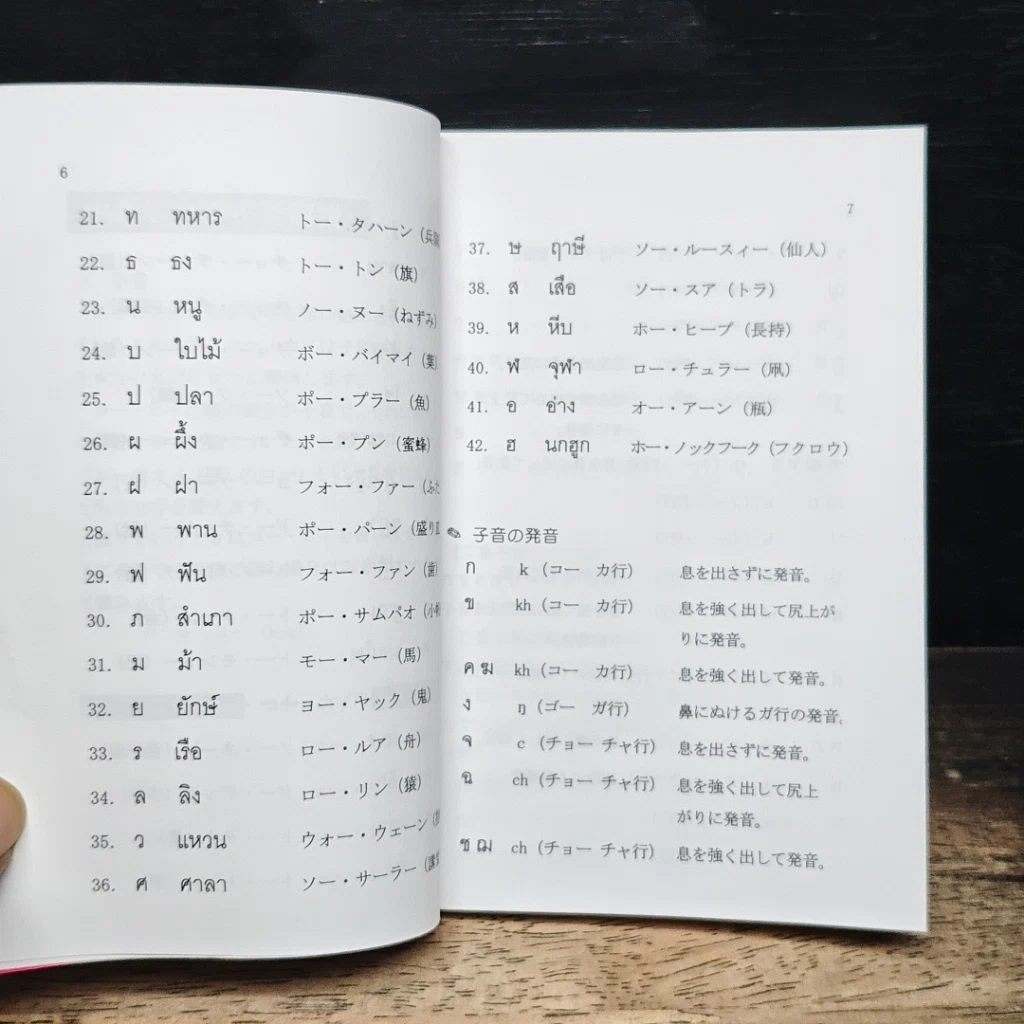 6
21. ท ทหาร トー・タハーン（兵隊
22. ธ ธง トー・トン（旗）
23. น หนู ノー・ヌー（ねずみ）
24. บ ใบไม้ ボー・バイマイ（葉）
25. ป ปลา ポー・プラー（魚）
26. ผ ผึ้ง ポー・プン（蜜蜂）
27. ฝ ฝา フォー・ファー（ふた
28. พ พาน ポー・パーン（盛り皿
29. ฟ ฟัน フォー・ファン（歯）
30. ภ สำเภา ポー・サムパオ（小
31. ม ม้า モー・マー（馬）
32. ย ยักษ์ ヨー・ヤック（鬼）
33. ร เรือ ロー・ルア（舟）
34. ล ลิง ロー・リン（猿）
35. ว แหวน ウォー・ウェーン（
36. ศ ศาลา ソー・サーラー（
7
37. ษ ฤาษี ソー・ルースィー（仙人）
38. ส เสือ ソー・スア（トラ）
39. ห หีบ ホー・ヒープ（長持）
40. ฬ จุฬา ロー・チュラー（凧）
41. อ อ่าง オー・アーン（瓶）
42. ฮ นกฮูก ホー・ノックフーク（フクロウ）
✎ 子音の発音
ก k（コー カ行） 息を出さずに発音。
ข kh（コー カ行） 息を強く出して尻上が
りに発音。
ค ฆ kh（コー カ行） 息を強く出して発音。
ง ŋ（ゴー ガ行） 鼻にぬけるガ行の発音。
จ c（チョー チャ行） 息を出さずに発音。
ฉ ch（チョー チャ行） 息を強く出して尻上
がりに発音。
ช ฌ ch（チョー チャ行） 息を強く出して発音。